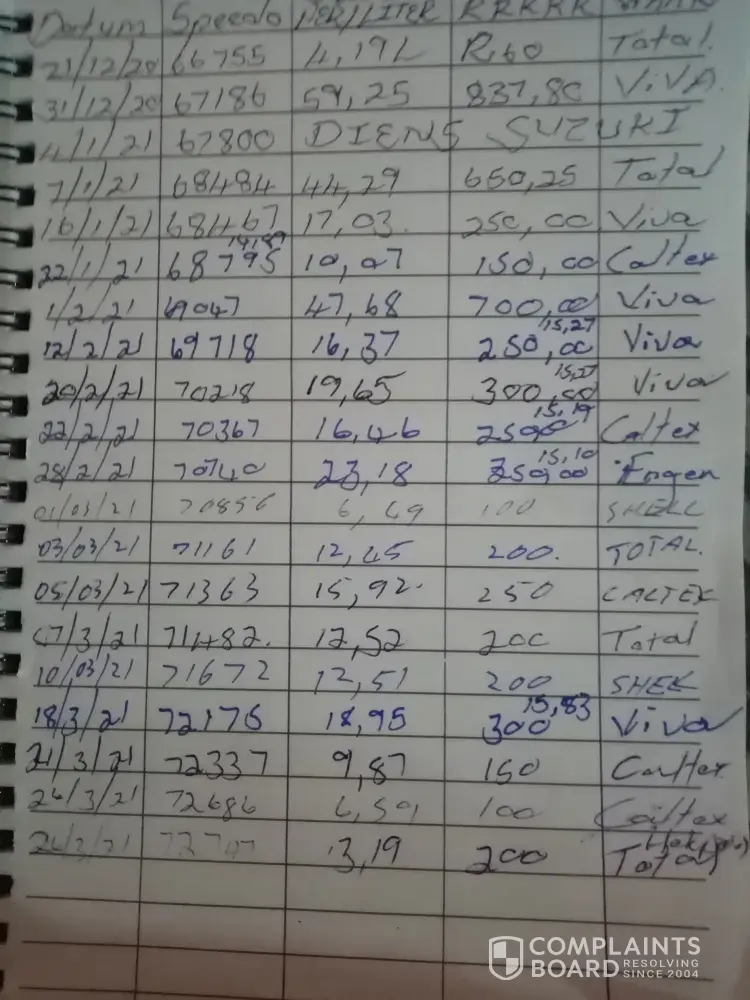 Datum Speedo PER/LITER RRRRR
21/12/20 66755 4,19L R,60 Total.
31/12/20 67186 59,25 837,80 ViVA.
4/1/21 67800 DIENS SUZUKI
7/1/21 68484 44,29 650,25 Total
16/1/21 68467 17,03. 250,00 Viva
14,89
22/1/21 68795 10,07 150,00 Caltex
1/2/21 69047 47,68 700,00 Viva
15,27
12/2/21 69718 16,37 250,00 Viva
15,27
20/2/21 70218 19,65 300,00 Viva
15,19
22/2/21 70367 16,46 2500 Caltex
15,10
28/2/21 70740 23,18 350,00 Engen
01/03/21 70856 6,49 100 SHELL
03/03/21 71161 12,45 200. TOTAL.
05/03/21 71363 15,92. 250 CALTEX
07/3/21 71482. 12,52 200 Total
10/03/21 71672 12,51 200 SHEK
15,83
18/3/21 72176 18,95 300 Viva
21/3/21 72337 9,87 150 Caltex
26/3/21 72686 6,59 100 Caltex
26/3/21 13,19 200 Total
COMPLAINTS
BOARD RESOLVING
SINCE 2004